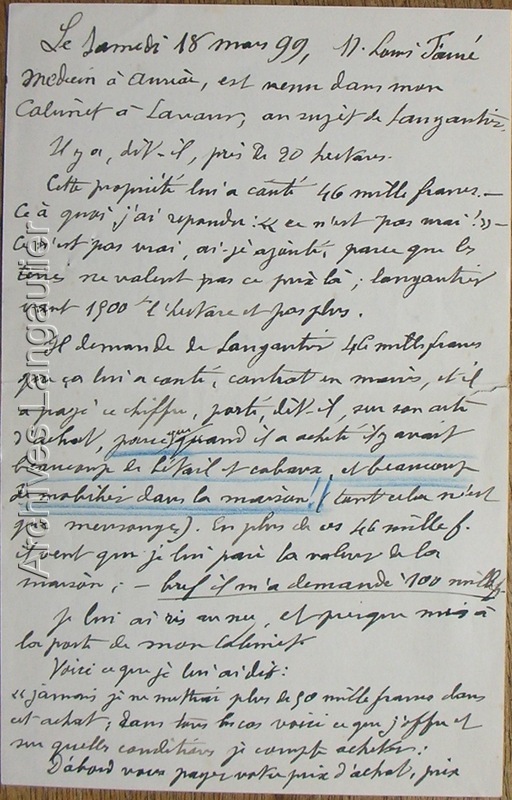 Le Samedi 18 mars 99, M. Louis
Medecin à, est venu dans mon
Cabinet à Lavaur, au sujet de Langautier.
Il y a, dit-il, près de 20 hectares.
Cette propriété lui a couté 46 mille francs. —
Ce à quoi j'ai repondu: « ce n'est pas vrai! » —
Ce n'est pas vrai, ai-je ajouté, parce que les
terres ne valent pas ce prix là; Langautier
vaut 1500 f l'hectare et pas plus.
Il demande de Langautier 46 mille francs
que ça lui a couté, contrat en mains, et il
a payé ce chiffre, porté, dit-il, sur son acte
d'achat, parce que quand il a acheté il y avait
beaucoup de bétail et cabaux, et beaucoup
de mobilier dans la maison!! (tout cela n'est
que mensonges). En plus de ces 46 mille f.
il veut que je lui paie la valeur de la
maison; — bref il m'a demandé 100 mille f.
Je lui ai ris au nez, et presque mis à
la porte de mon Cabinet.
Voici ce que je lui ai dit:
« jamais je ne mettrai plus de 50 mille francs dans
cet achat; dans tous les cas voici ce que j'offre et
sur quelles conditions je compte acheter:
D'abord vous payer votre prix d'achat, prix
Archives Lingaulier